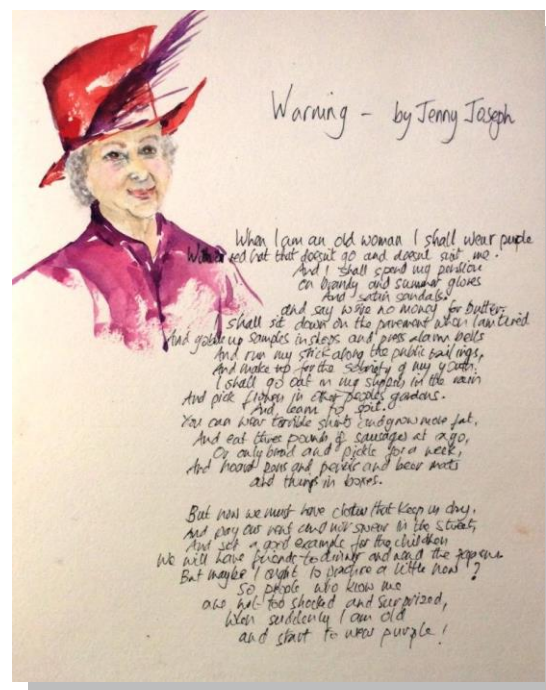 Warning - by Jenny Joseph
When I am an old woman I shall wear purple
With a red hat that doesn't go and doesn't suit me.
And I shall spend my pension
on brandy and summer gloves
And satin sandals.
and say we're no money for butter.
I shall sit down on the pavement when I am tired
And gobble up samples in shops and press alarm bells
And run my stick along the public railings,
And make up for the sobriety of my youth.
I shall go out in my slippers in the rain
And pick flowers in other people's gardens.
And, learn to spit.
You can wear terrible shirts and grow more fat,
And eat three pounds of sausages at a go,
Or only bread and pickle for a week,
And hoard pens and pencils and beer mats
and things in boxes.
But now we must have clothes that keep us dry,
And pay our rent and not swear in the street,
And set a good example for the children
We will have friends to dinner and read the papers.
But maybe I ought to practice a little now?
So people who know me
are not too shocked and surprized,
When suddenly I am old
and start to wear purple!